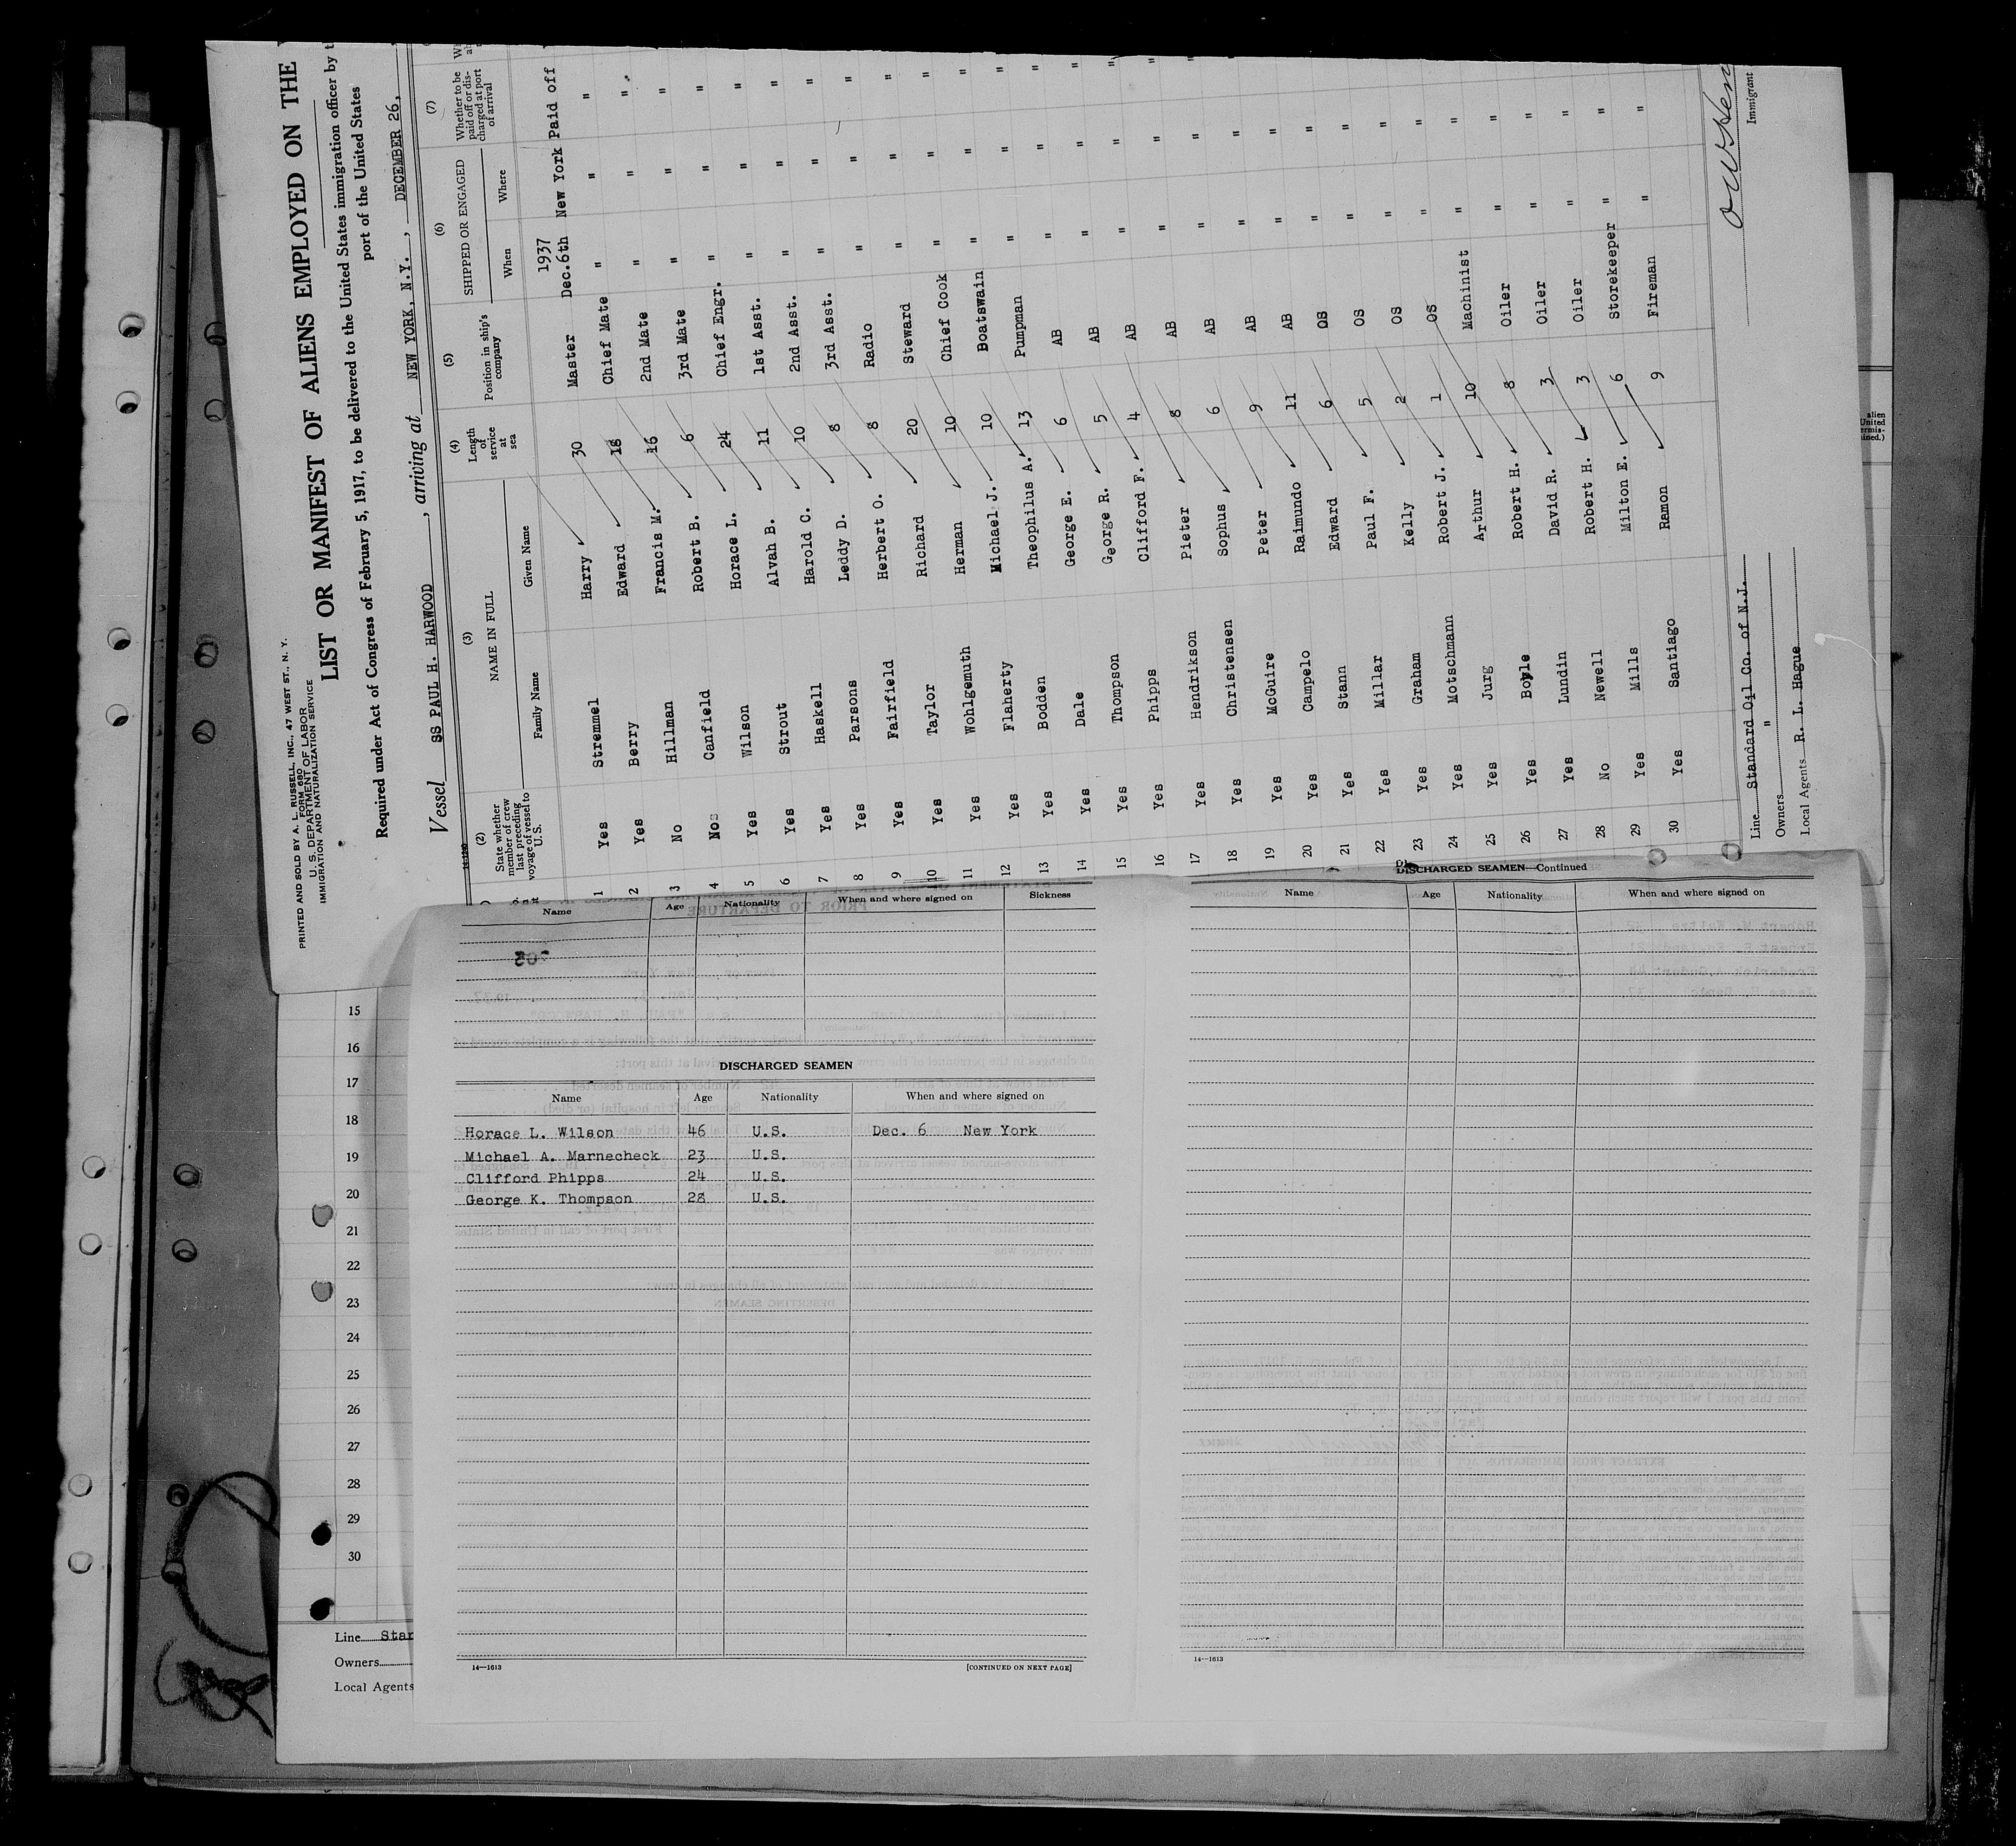 PRINTED AND SOLD BY A. L. RUSSELL, INC., 47 WEST ST., N. Y.
FORM 680
U. S. DEPARTMENT OF LABOR
IMMIGRATION AND NATURALIZATION SERVICE
LIST OR MANIFEST OF ALIENS EMPLOYED ON THE
Required under Act of Congress of February 5, 1917, to be delivered to the United States immigration officer by
port of the United States
Vessel SS PAUL H. HARWOOD , arriving at NEW YORK, N.Y. , DECEMBER 26,
(2) (3) (4) (5) (6) (7)
State whether member of crew last preceding voyage of vessel to U. S. NAME IN FULL Family Name Given Name Length of service at sea Position in ship's company SHIPPED OR ENGAGED When Where Whether to be paid off or discharged at port of arrival
1937
1 Yes Stremmel Harry 30 Master Dec.6th New York Paid off
2 Yes Berry Edward 18 Chief Mate " " "
3 No Hillman Francis M. 16 2nd Mate " " "
4 No Canfield Robert B. 6 3rd Mate " " "
5 Yes Wilson Horace L. 24 Chief Engr. " " "
6 Yes Strout Alvah B. 11 1st Asst. " " "
7 Yes Haskell Harold C. 10 2nd Asst. " " "
8 Yes Parsons Leddy D. 8 3rd Asst. " " "
9 Yes Fairfield Herbert O. 8 Radio " " "
10 Yes Taylor Richard 20 Steward " " "
11 Yes Wohlgemuth Herman 10 Chief Cook " " "
12 Yes Flaherty Michael J. 10 Boatswain " " "
13 Yes Bodden Theophilus A. 13 Pumpman " " "
14 Yes Dale George E. 6 AB " " "
15 Yes Thompson George R. 5 AB " " "
16 Yes Phipps Clifford F. 4 AB " " "
17 Yes Hendrikson Pieter 8 AB " " "
18 Yes Christensen Sophus 6 AB " "
19 Yes McGuire Peter 9 AB " "
20 Yes Campelo Raimundo 11 AB " "
21 Yes Stann Edward 6 OS " "
22 Yes Millar Paul F. 5 OS " "
23 Yes Graham Kelly 2 OS " "
24 Yes Motschmann Robert J. 1 OS " "
25 Yes Jurg Arthur 10 Machinist " "
26 Yes Boyle Robert H. 8 Oiler " "
27 Yes Lundin David R. 3 Oiler " "
28 No Newell Robert H. 3 Oiler " "
29 Yes Mills Milton E. 6 Storekeeper " "
30 Yes Santiago Ramon 9 Fireman " "
Line Standard Oil Co. of N.J.
Owners "
Local Agents R. L. Hague
Immigrant
Name Age Nationality When and where signed on Sickness
DISCHARGED SEAMEN
Name Age Nationality When and where signed on
Horace L. Wilson 46 U.S. Dec. 6 New York
Michael A. Marnecheck 23 U.S.
Clifford Phipps 24 U.S.
George K. Thompson 28 U.S.
14—1613 [CONTINUED ON NEXT PAGE]
DISCHARGED SEAMEN—Continued
Name Age Nationality When and where signed on
14—1613
15
16
17
18
19
20
21
22
23
24
25
26
27
28
29
30
Line Stan
Owners
Local Agents
alien
United
ermis-
ined.)